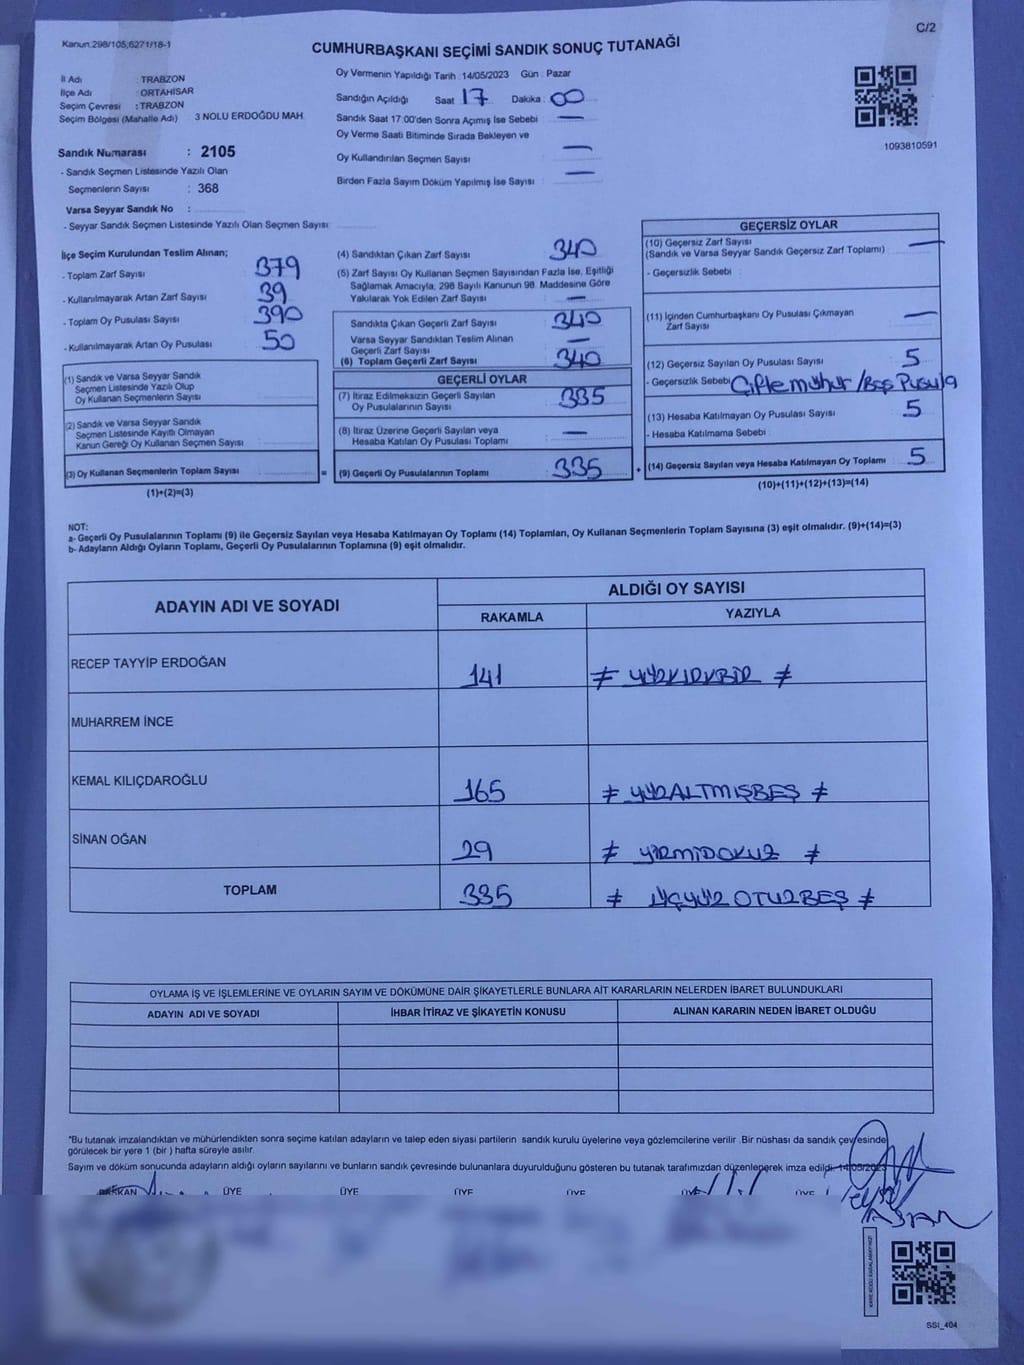 Kanun:298/105;6271/18-1
C/2
CUMHURBAŞKANI SEÇİMİ SANDIK SONUÇ TUTANAĞI
İl Adı : TRABZON
İlçe Adı : ORTAHİSAR
Seçim Çevresi : TRABZON
Seçim Bölgesi (Mahalle Adı) 3 NOLU ERDOĞDU MAH.
Sandık Numarası : 2105
- Sandık Seçmen Listesinde Yazılı Olan
Seçmenlerin Sayısı : 368
Varsa Seyyar Sandık No :
- Seyyar Sandık Seçmen Listesinde Yazılı Olan Seçmen Sayısı:
Oy Vermenin Yapıldığı Tarih : 14/05/2023 Gün : Pazar
Sandığın Açıldığı Saat 17 Dakika : 00
Sandık Saat 17:00'den Sonra Açımış İse Sebebi —
Oy Verme Saati Bitiminde Sırada Bekleyen ve
Oy Kullandırılan Seçmen Sayısı —
Birden Fazla Sayım Döküm Yapılmış İse Sayısı —
1093810591
İlçe Seçim Kurulundan Teslim Alınan;
- Toplam Zarf Sayısı : 379
- Kullanılmayarak Artan Zarf Sayısı : 39
- Toplam Oy Pusulası Sayısı : 390
- Kullanılmayarak Artan Oy Pusulası : 50
(1) Sandık ve Varsa Seyyar Sandık
Seçmen Listesinde Yazılı Olup
Oy Kullanan Seçmenlerin Sayısı
(2) Sandık ve Varsa Seyyar Sandık
Seçmen Listesinde Kayıtlı Olmayan
Kanun Gereği Oy Kullanan Seçmen Sayısı
(3) Oy Kullanan Seçmenlerin Toplam Sayısı
(1)+(2)=(3)
(4) Sandıktan Çıkan Zarf Sayısı : 340
(5) Zarf Sayısı Oy Kullanan Seçmen Sayısından Fazla İse, Eşitliği
Sağlamak Amacıyla, 298 Sayılı Kanunun 98. Maddesine Göre
Yakılarak Yok Edilen Zarf Sayısı —
Sandıkta Çıkan Geçerli Zarf Sayısı : 340
Varsa Seyyar Sandıktan Teslim Alınan
Geçerli Zarf Sayısı —
(6) Toplam Geçerli Zarf Sayısı : 340
GEÇERLİ OYLAR
(7) İtiraz Edilmeksizin Geçerli Sayılan
Oy Pusulalarının Sayısı : 335
(8) İtiraz Üzerine Geçerli Sayılan veya
Hesaba Katılan Oy Pusulası Toplamı —
= (9) Geçerli Oy Pusulalarının Toplamı : 335
GEÇERSİZ OYLAR
(10) Geçersiz Zarf Sayısı —
(Sandık ve Varsa Seyyar Sandık Geçersiz Zarf Toplamı)
- Geçersizlik Sebebi :
(11) İçinden Cumhurbaşkanı Oy Pusulası Çıkmayan
Zarf Sayısı —
(12) Geçersiz Sayılan Oy Pusulası Sayısı 5
- Geçersizlik Sebebi Çifte mühür / Boş Pusula
(13) Hesaba Katılmayan Oy Pusulası Sayısı 5
- Hesaba Katılmama Sebebi
+ (14) Geçersiz Sayılan veya Hesaba Katılmayan Oy Toplamı 5
(10)+(11)+(12)+(13)=(14)
NOT:
a- Geçerli Oy Pusulalarının Toplamı (9) ile Geçersiz Sayılan veya Hesaba Katılmayan Oy Toplamı (14) Toplamları, Oy Kullanan Seçmenlerin Toplam Sayısına (3) eşit olmalıdır. (9)+(14)=(3)
b- Adayların Aldığı Oyların Toplamı, Geçerli Oy Pusulalarının Toplamına (9) eşit olmalıdır.
ADAYIN ADI VE SOYADI
ALDIĞI OY SAYISI
RAKAMLA YAZIYLA
RECEP TAYYİP ERDOĞAN 141 ≠ YÜZKIRKBİR ≠
MUHARREM İNCE
KEMAL KILIÇDAROĞLU 165 ≠ YÜZALTMIŞBEŞ ≠
SİNAN OĞAN 29 ≠ YİRMİDOKUZ ≠
TOPLAM 335 ≠ ÜÇYÜZ OTUZBEŞ ≠
OYLAMA İŞ VE İŞLEMLERİNE VE OYLARIN SAYIM VE DÖKÜMÜNE DAİR ŞİKAYETLERLE BUNLARA AİT KARARLARIN NELERDEN İBARET BULUNDUKLARI
ADAYIN ADI VE SOYADI İHBAR İTİRAZ VE ŞİKAYETİN KONUSU ALINAN KARARIN NEDEN İBARET OLDUĞU
"Bu tutanak imzalandıktan ve mühürlendikten sonra seçime katılan adayların ve talep eden siyasi partilerin sandık kurulu üyelerine veya gözlemcilerine verilir .Bir nüshası da sandık çevresinde
görülecek bir yere 1 (bir ) hafta süreyle asılır.
Sayım ve döküm sonucunda adayların aldığı oyların sayılarını ve bunların sandık çevresinde bulunanlara duyurulduğunu gösteren bu tutanak tarafımızdan düzenlenerek imza edildi. 14/05/2023
BAŞKAN ÜYE ÜYE ÜYE ÜYE ÜYE ÜYE
SSI_404